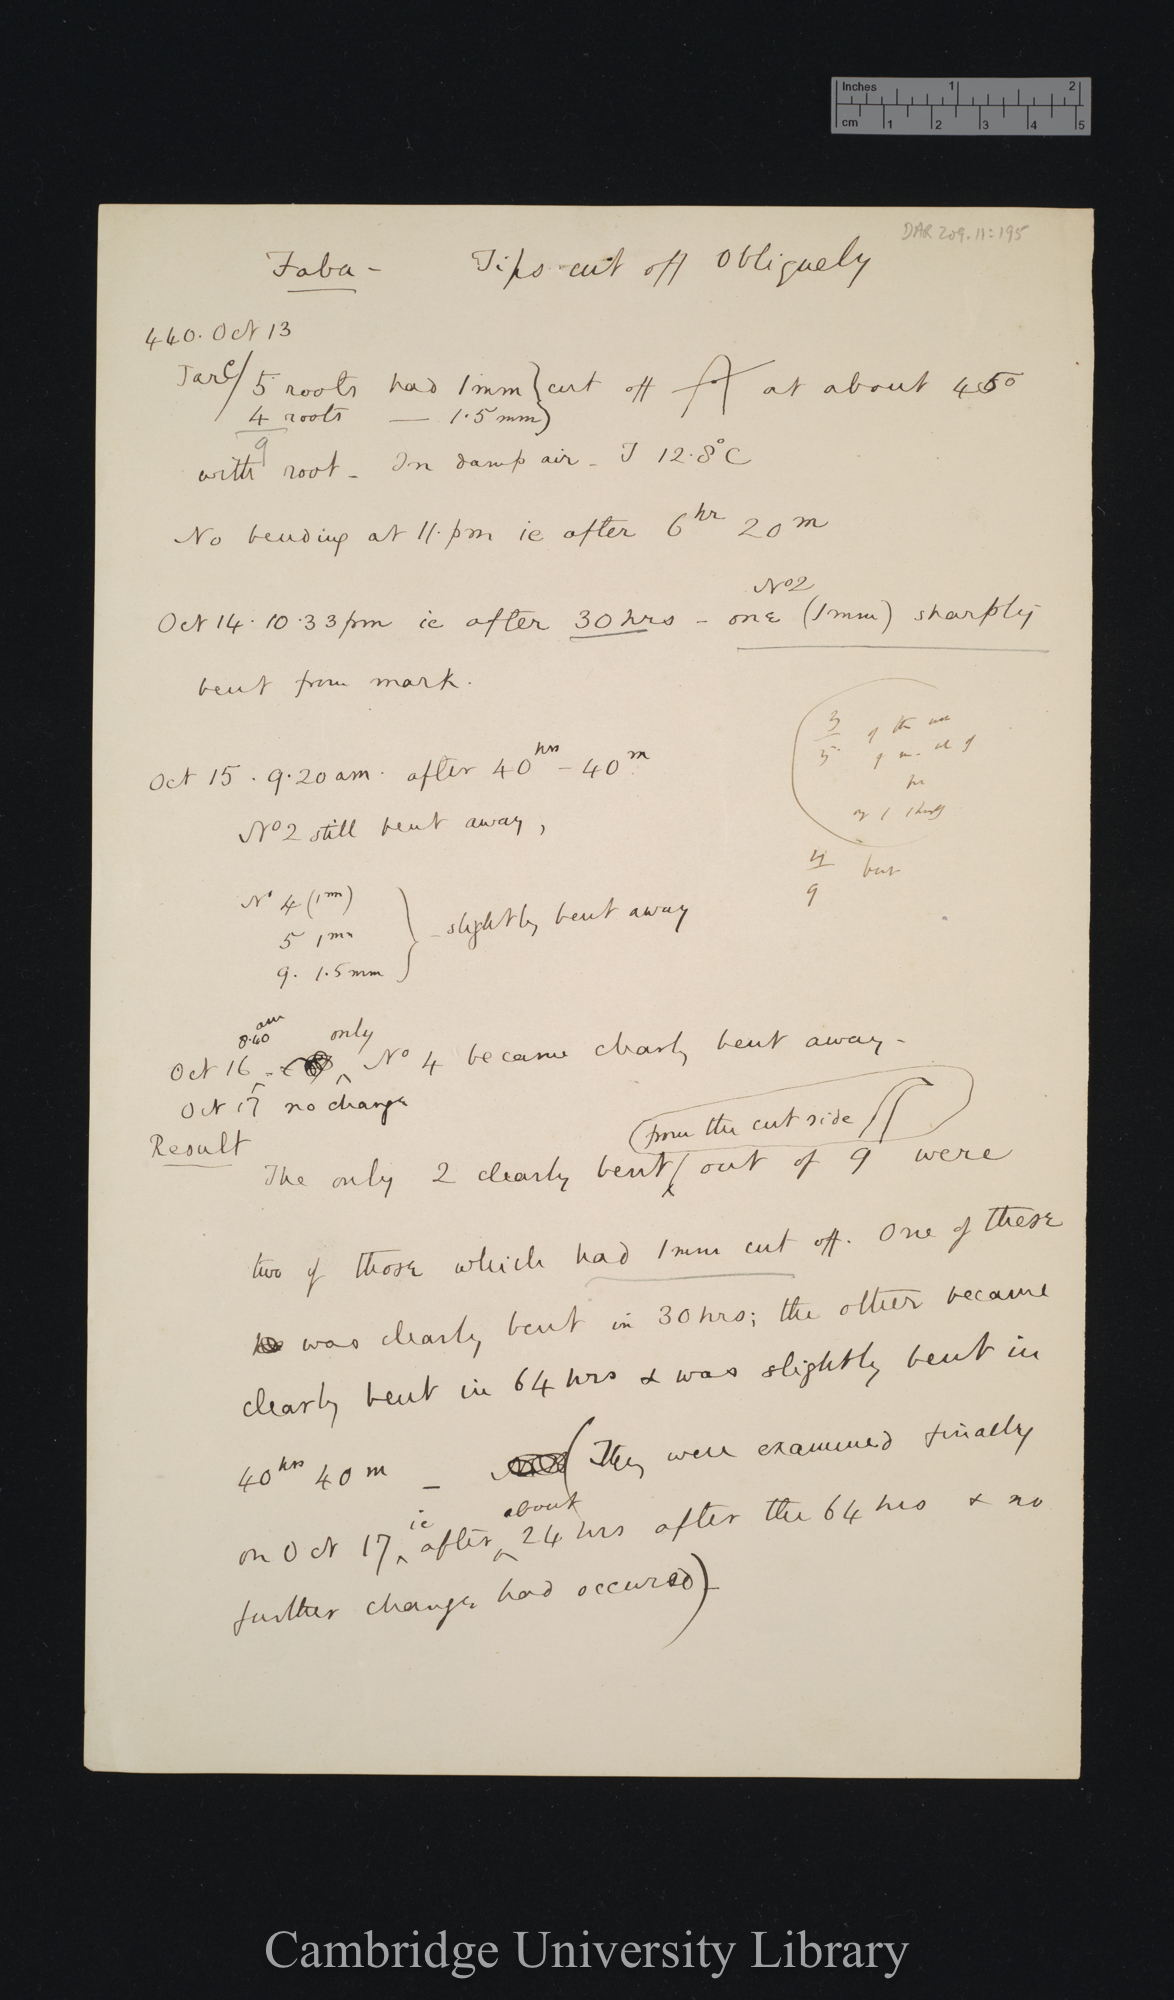 Inches 1 2
cm 1 2 3 4 5
DAR 209.11:195
Faba - Tips cut off Obliquely
440. Oct 13
Jar C/ 5 roots had 1mm } cut off at about 4 50
4 roots — 1.5 mm }
9
with root - In damp air - T 12.8°C
No bending at 11. pm ie after 6 hr 20 m
No 2
Oct 14. 10.33 pm ie after 30 hrs - one (1mm) sharply
bent from mark.
3/5 of the
Oct 15. 9.20 am. after 40 hrs - 40 m
No 2 still bent away,
4/9 bent
No 4 (1 mm)
5 1 mm
9. 1.5 mm
} - slightly bent away
8.40 am only
Oct 16 - No 4 became clearly bent away -
Oct 17 no change
(from the cut side
Result
The only 2 clearly bent / out of 9 were
two of those which had 1mm cut off. One of these
was clearly bent in 30 hrs; the other became
clearly bent in 64 hrs & was slightly bent in
40 hrs 40 m - (They were examined finally
ie about
on Oct 17, after 24 hrs after the 64 hrs & no
further change had occured) -
Cambridge University Library